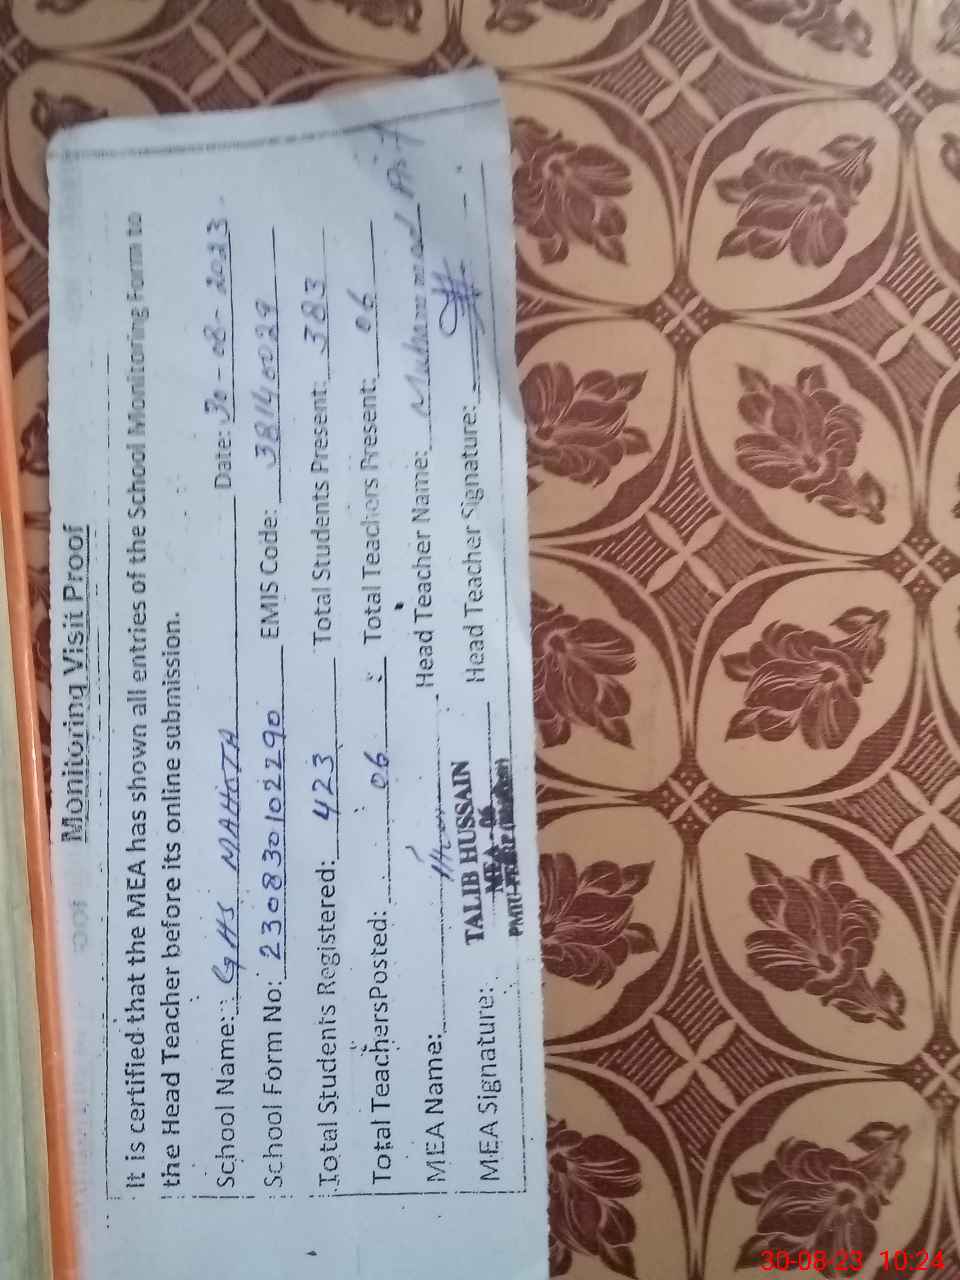 Monitoring Visit Proof
It is certified that the MEA has shown all entries of the School Monitoring Form to
the Head Teacher before its online submission.
School Name: GHS MAHOTA Date: 30-08-2023
School Form No: 230830102290 EMIS Code: 38140029
Total Students Registered: 423 Total Students Present: 383
Total TeachersPosted: 06 Total Teachers Present: 06
MEA Name: Head Teacher Name: Muhammad
MEA Signature: Head Teacher Signature:
TALIB HUSSAIN
MEA - 06
30-08-23 10:24